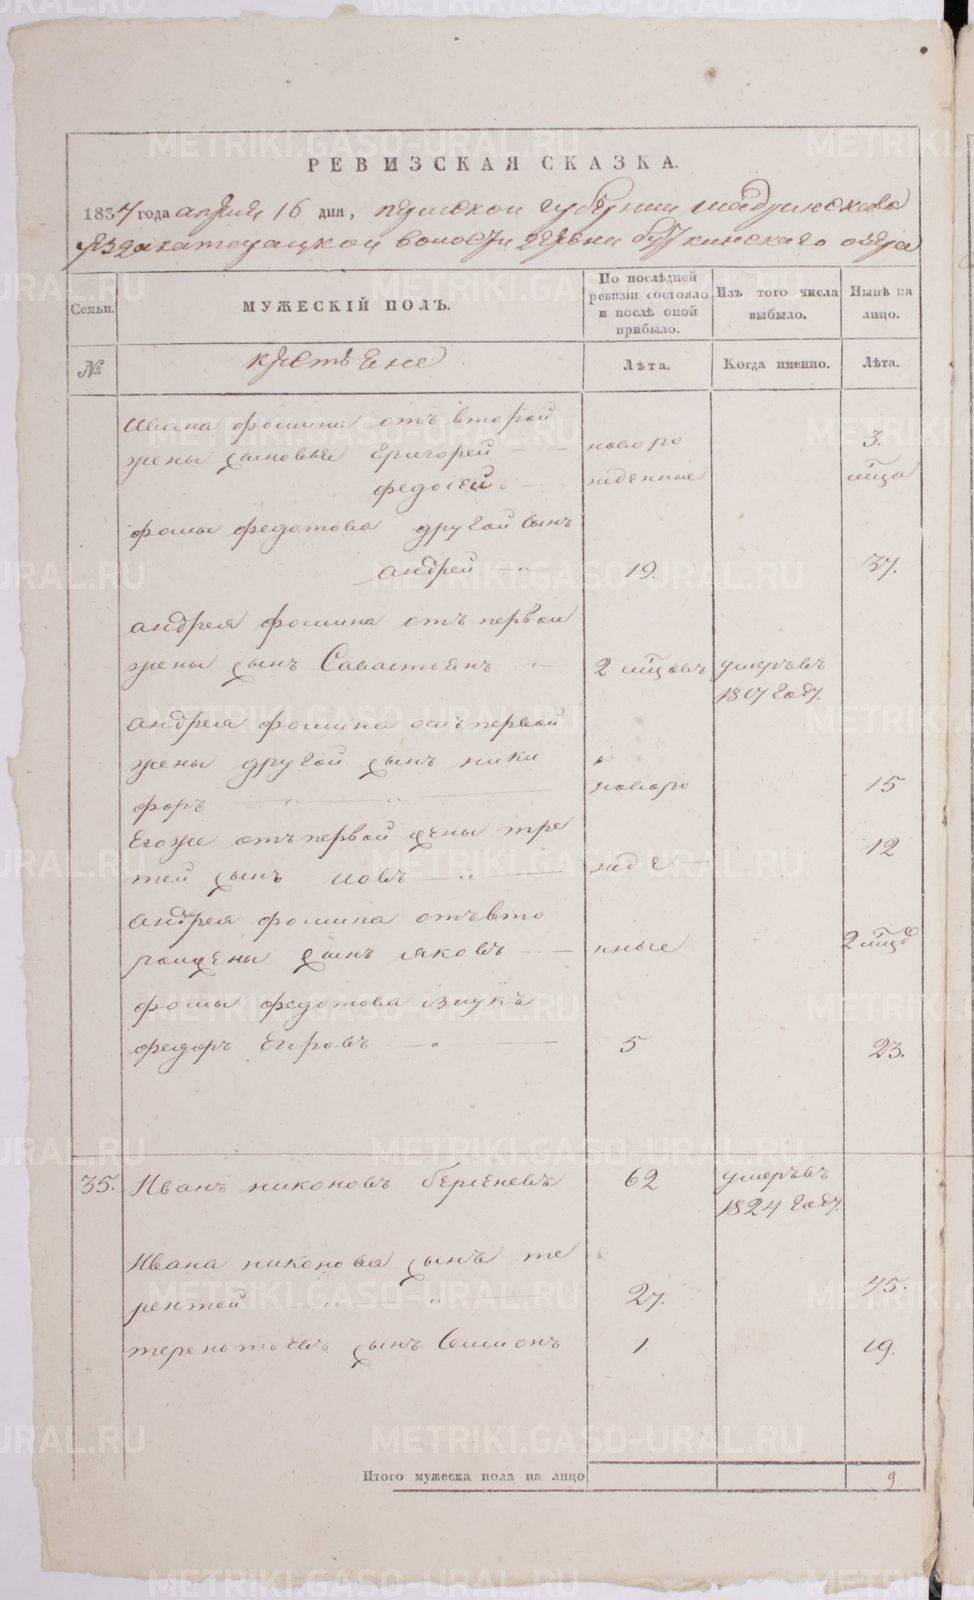 РЕВИЗСКАЯ СКАЗКА.
1834 года апреля 16 дня, пермской губернии шадринскаго
уезда катайцкой волости деревни буткинскаго озера
Семьи.
МУЖЕСКІЙ ПОЛЪ.
По послѣдней ревизіи состояло и послѣ оной прибыло.
Изъ того числа выбыло.
Нынѣ на лицо.
№
крестьяне
Лѣта.
Когда именно.
Лѣта.
Ивана фомина отъ второй
жены сыновья Григорей новоро 3.
федосей жденные
фомы федотова другой сынъ
андрей 19. 37.
андрея фомина отъ первой
жены сынъ Савастьянъ 2 умеръ въ
18 году.
андрея фомина отъ первой
жены другой сынъ ники
форъ новоро 15
Егоже отъ первой жены тре 12
тей сынъ иовъ жде
андрея фомина отъ вто
рой жены сынъ яковъ нные 2
фомы федотова внукъ
федоръ Егоровъ 5 23.
35. Иванъ никоновъ берсеневъ 62 умеръ въ
1824 году.
Ивана никонова сынъ те
рентей 27. 45.
терентьевъ сынъ Семионъ 1 19.
Итого мужеска пола на лицо 9
METRIKI.GASO-URAL.RU